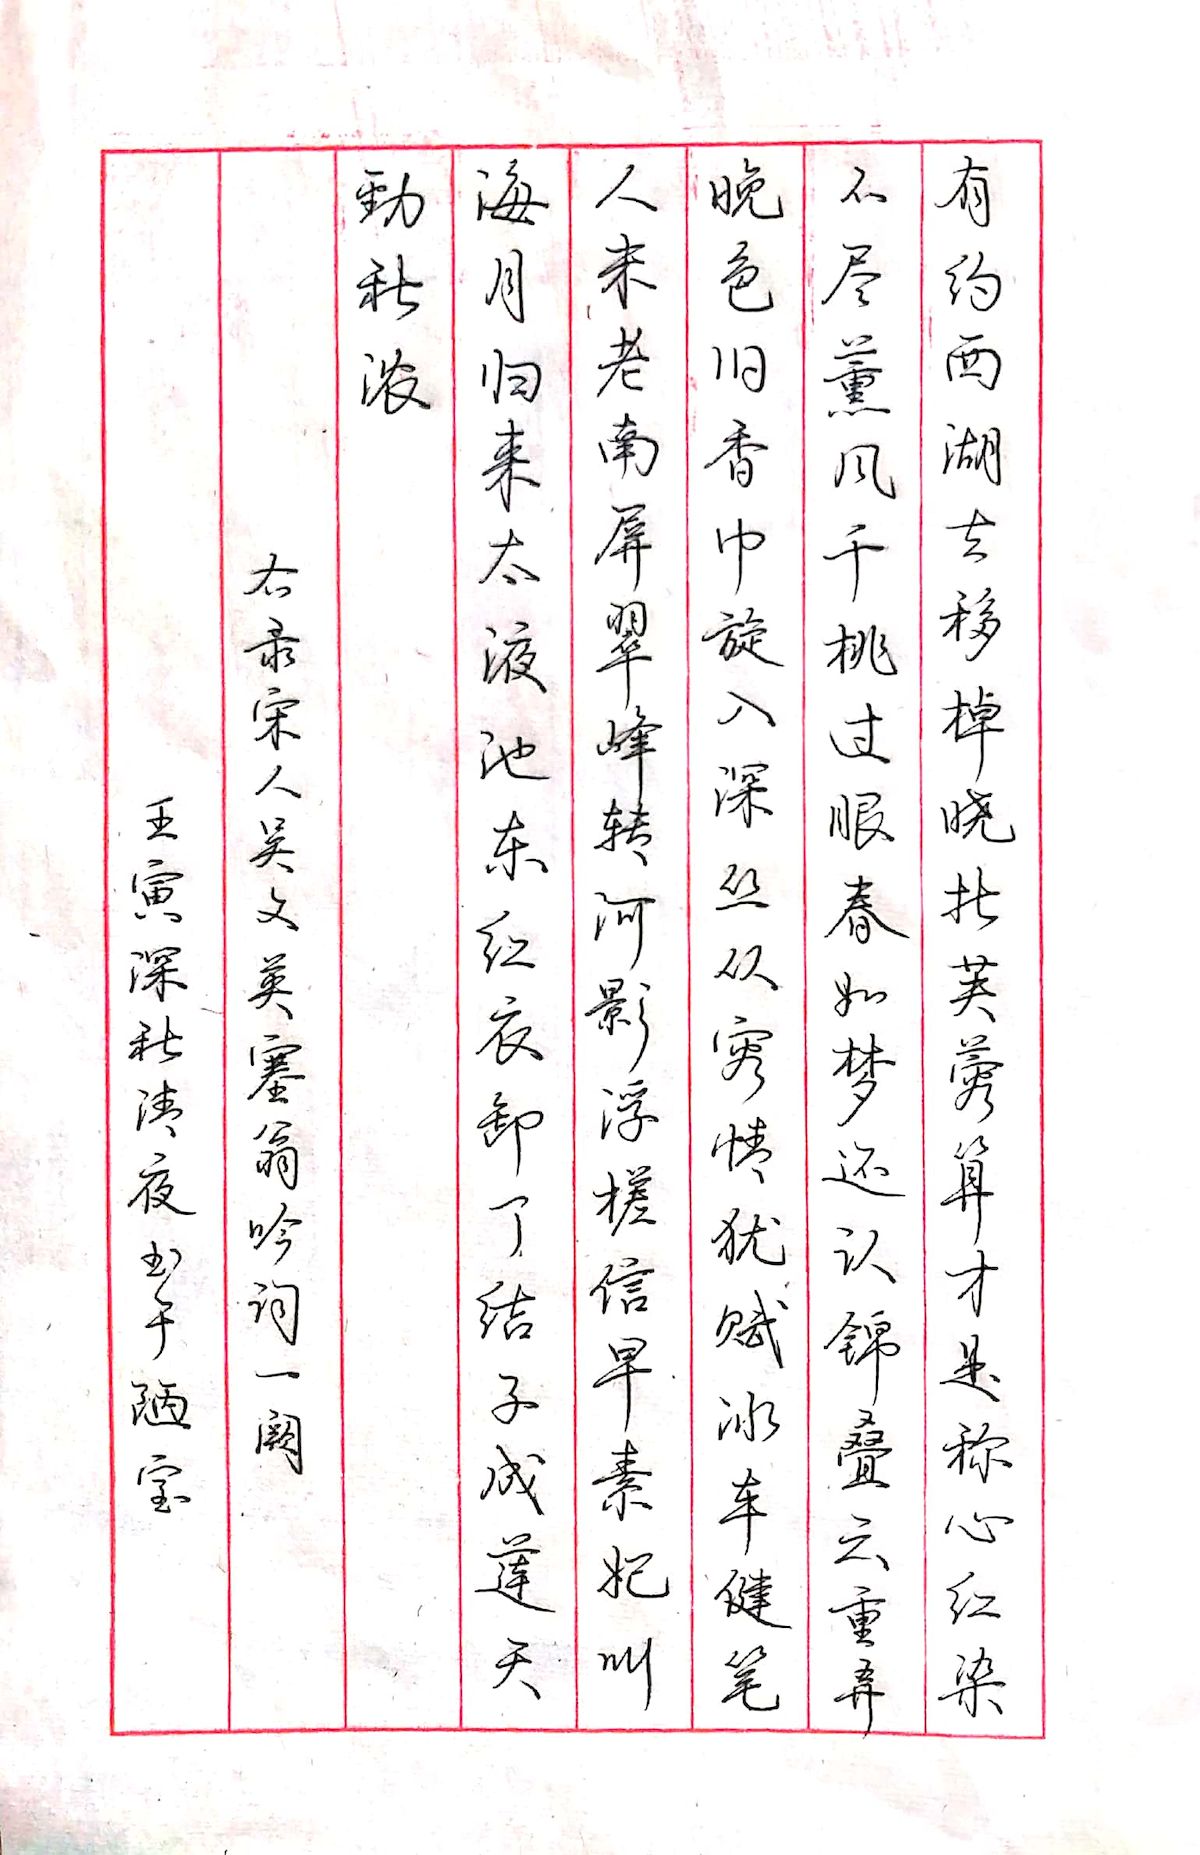 有约西湖去移棹晓折芙蓉算才是称心红染
不尽薰风千桃过眼春如梦还认锦叠云重弄
晚色旧香中旋入深丛从容情犹赋冰车健笔
人未老南屏翠峰转河影浮槎信早素妃叫
海月归来太液池东红衣卸了结子成莲天
劲秋浓
右录宋人吴文英塞翁吟词一阕
壬寅深秋清夜书于陋室